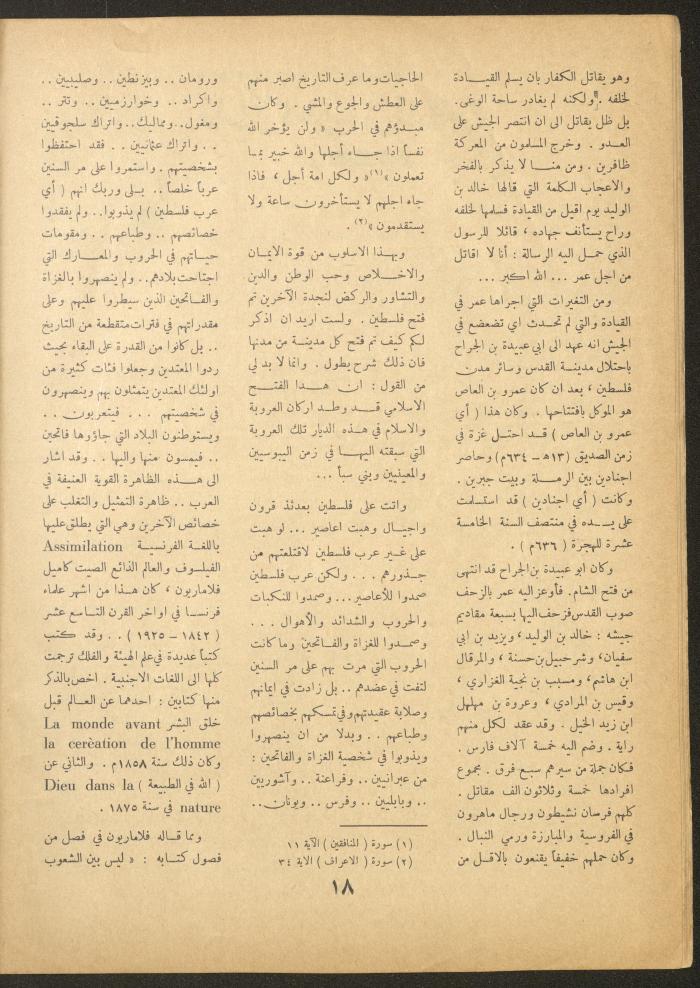 وهو يقاتل الكفار بان يسلم القيــادة
لخلفه . ولكنه لم يغادر ساحة الوغى.
بل ظل يقاتل الى ان انتصر الجيش على
العدو . وخرج المسلمون من المعركة
ظافرين . ومن منــا لا يذكر بالفخر
والاعجاب الكلمة التي قالها خالد بن
الوليد يوم اقيل من القيادة فسلمها لخلفه
وراح يستأنف جهاده ، قائلا للرسول
الذي حمــل اليه الرسالة : أنا لا اقاتل
من اجل عمر ... الله اكبر ...
ومن التغيرات التي اجراها عمر في
القيادة والتي لم تحــدث اي تضعضع في
الجيش انه عهد الى ابي عبيدة بن الجراح
باحتلال مدينــة القدس وسائر مدن
فلسطين ، بعد ان كان عمرو بن العاص
هو الموكل بافتتاحها . وكان هذا ( أي
عمرو بن العاص ) قــد احتــل غزة في
زمن الصديق (١٣هـ – ٦٣٤م) وحاصر
اجنادين بين الرمــلة وبيت جبرين .
وكانت ( أي اجنادين ) قد استسلمت
على يــــده في منتصف السنة الخامسة
عشرة للهجرة ( ٦٣٦م ) .
وكان ابو عبيدة بن الجراح قد انتهى
من فتح الشام. فأوعز اليه عمر بالزحف
صوب القدس فزحف اليها بسبعة مقاديم
جيشه : خالد بن الوليد ، ويزيد بن ابي
سفيان، وشرحبيل بن حسنة ، والمرقال
ابن هاشم، ومسيب بن نجية الفزاري ،
وقيس بن المرادي ، وعروة بن مهلهل
ابن زيد الخيل . وقد عقد لكل منهم
راية . وضم اليه خمسة آلاف فارس .
فكان جملة من سيرهم سبع فرق . مجموع
افرادها خمسة وثلاثون الف مقاتل .
كلهم فرسان نشيطون ورجال ماهرون
في الفروسية والمبارزة ورمي النبال .
وكان حملهم خفيفاً يقنعون بالاقــل من
الحاجيات وما عرف التاريخ اصبر منهم
على العطش والجوع والمشي . وكان
مبــدؤهم في الحرب « ولن يؤخر الله
نفساً اذا جــاء أجلها والله خبير بمــا
تعملون »(١)« ولكل امة أجل ، فاذا
جاء اجلهم لا يستأخرون ساعة ولا
يستقدمون »(٢) .
وبهــذا الاسلوب من قوة الايمــان
والاخــلاص وحب الوطن والدين
والتشاور والركض لنجدة الآخرين تم
فتح فلسطين . ولست اريد ان اذكر
لكم كيف تم فتح كل مدينــة من مدنها
فان ذلك شرح يطول . وانما لا بد لي
من القول : ان هــذا الفتــح
الاسلامي قــد وطــد اركان العروبة
والاسلام في هــذه الديار تلك العروبة
التي سبقته اليهــا في زمن اليبوسيين
والمعينيين وبني سبأ ...
واتت على فلسطين بعدئذ قرون
واجيــال وهبت اعاصير ... لو هبت
على غــير عرب فلسطين لاقتلعتهم من
جــذورهم ... ولكن عرب فلسطين
صمدوا للأعاصير... وصمدوا للنكبات
والحروب والشدائد والأهوال ...
وصمــدوا للغزاة والفــاتحين وما كانت
الحروب التي مرت بهم على مر السنين
لتفت في عضدهم .. بل زادت في ايمانهم
وصلابة عقيدتهم وفي تمسكهم بخصائصهم
وطباعهم .. وبدلا من ان ينصهروا
ويذوبوا في شخصية الغزاة والفاتحين :
من عبرانيين .. وفراعنة .. وآشوريين
.. وبابليين .. وفرس .. ويونان..
(١) سورة ( المنافقين ) الآية ١١
(٢) سورة ( الاعراف ) الاية ٣٤
ورومان .. وبيزنطين .. وصليبيين ..
واكراد .. وخوارزميين .. وتتر ..
ومغول.. ومماليك.. واتراك سلجوقيين
.. واتراك عثمانيين .. فقد احتفظوا
بشخصيتهم . واستمروا على مر السنين
عرباً خلصاً .. بــلى وربك انهم ( أي
عرب فلسطين ) لم يذوبوا.. ولم يفقدوا
خصائصهم .. وطباعهم .. ومقومات
حيــاتهم في الحروب والمعــارك التي
اجتاحت بلادهم.. ولم ينصهروا بالغزاة
والفــاتحين الذين سيطروا عليهم وعلى
مقدراتهم في فترات متقطعة من التاريخ
.. بل كانوا من القدرة على البقاء بحيث
ردوا المعتدين وجعلوا فئات كثيرة من
اولئك المعتدين يتمثلون بهم وينصهرون
في شخصيتهم ... فيتعربون ..
ويستوطنون البلاد التي جاؤرها فاتحين
.. فيمسون منها واليها .. وقد اشار
الى هــذه الظاهرة القوية العنيفة في
العرب .. ظاهرة التمثيل والتغلب على
خصائص الآخرين وهي التي يطلق عليها
باللغة الفرنسيــة Assimilation
الفيلسوف والعالم الذائع الصيت كاميل
فلاماريون ، كان هــذا من اشهر علماء
فرنســا في اواخر القرن التــاسع عشر
( ١٨٤٢ – ١٩٢٥ ) .. وقد كتب
كتباً عديدة في علم الهيئة والفلك ترجمت
كلها الى اللغات الاجنبية . اخص بالذكر
منها كتابين : احدهما عن العــالم قبل
خلق البشر La monde avant
la cerèation de l'homme
وكان ذلك سنة ١٨٥٨م . والثاني عن
( الله في الطبيعة ) Dieu dans la
nature في سنة ١٨٧٥ .
ومما قــاله فلاماريون في فصل من
فصول كتــابه : « ليس بين الشعوب
١٨